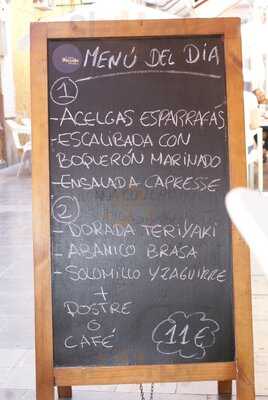 MENÚ DEL DÍA
1
- ACELGAS ESPARRAGÁS
- ESCALIBADA CON
BOQUERÓN MARINADO
- ENSALADA CAPRESSE
2
- DORADA TERIYAKI
- ABANICO BRASA
- SOLOMILLO YZAGUIRRE
+
POSTRE
Ó
CAFÉ
11€